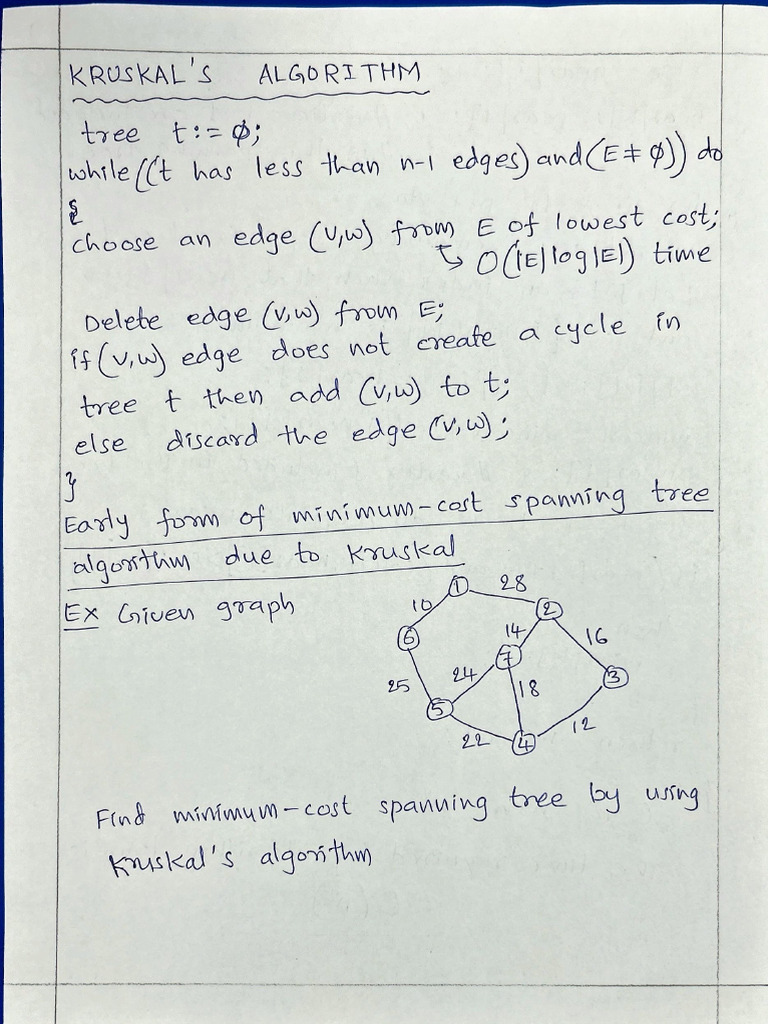 KRUSKAL'S ALGORITHM
tree t := ∅;
while((t has less than n-1 edges) and (E ≠ ∅)) do
{
choose an edge (v,w) from E of lowest cost;
↳ O(|E|log|E|) time
Delete edge (v,w) from E;
if (v,w) edge does not create a cycle in
tree t then add (v,w) to t;
else discard the edge (v,w);
}
Early form of minimum-cost spanning tree
algorithm due to Kruskal
Ex Given graph
1 28
10 2
6 14 16
7
24 3
25 18
5
22 4 12
Find minimum-cost spanning tree by using
Kruskal's algorithm